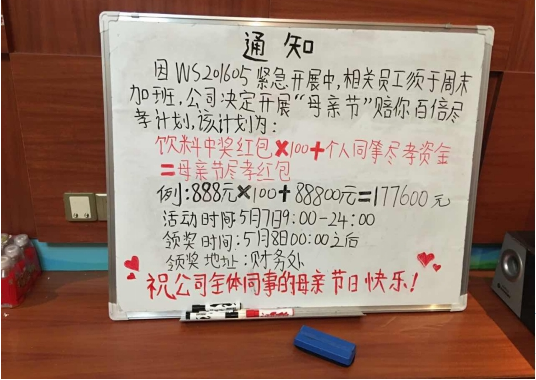 通知
因WS201605紧急开展中,相关员工须于周末
加班,公司决定开展“母亲节”赔你百倍尽
孝计划,该计划为:
饮料中奖红包×100+个人同事尽孝资金
=母亲节尽孝红包
例:888元×100+88800元=177600元
活动时间:5月7日9:00-24:00
领奖时间:5月8日00:00之后
领奖地址:财务处
祝公司全体同事的母亲节日快乐!